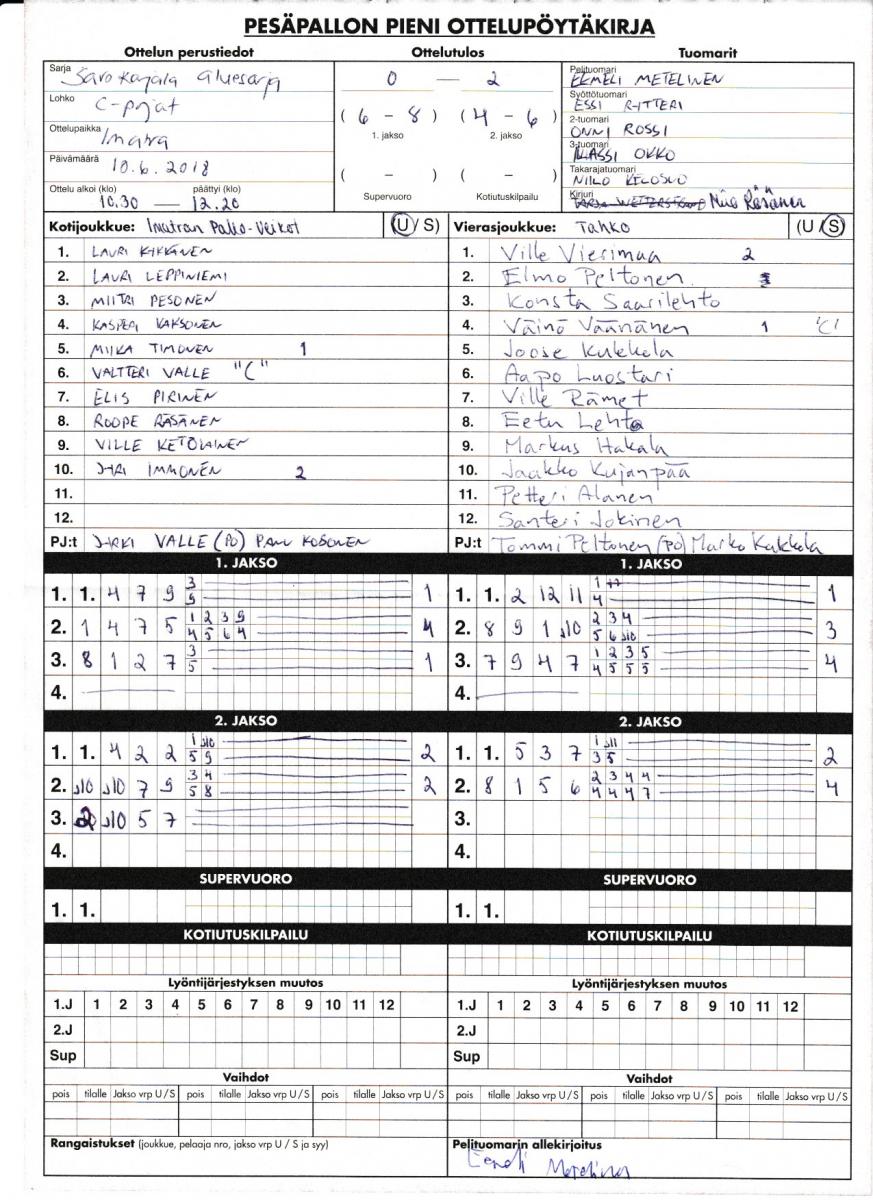 PESÄPALLON PIENI OTTELUPÖYTÄKIRJA
Ottelun perustiedot Ottelutulos Tuomarit
Sarja Savo Karjala aluesarja
Lohko C-pojat
Ottelupaikka Imatra
Päivämäärä 10.6.2018
Ottelu alkoi (klo) päättyi (klo)
10.30 — 12.20
0 — 2
(6 - 8) (4 - 6)
1. jakso 2. jakso
( - ) ( - )
Supervuoro Kotiutuskilpailu
Pelituomari EEMELI METELINEN
Syöttötuomari ESSI RITTERI
2-tuomari ONNI ROSSI
3-tuomari KLASSI OKKO
Takarajatuomari NIILO
Kirjuri Räsänen
Kotijoukkue: Imatran Pallo-Veikot (U / S)
1. LAURI
2. LAURI LEPPINIEMI
3. MIITRI PESONEN
4. KASPERI KAKSONEN
5. MIIKA TIMONEN 1
6. VALTTERI VALLE "C"
7. ELIS PIRINEN
8. ROOPE RÄSÄNEN
9. VILLE KETOLAINEN
10. JYRI IMMONEN 2
11.
12.
PJ:t JYRKI VALLE (PO)
Vierasjoukkue: TAHKO (U / S)
1. Ville Vierimaa 2
2. Elmo Peltonen
3. Konsta Saarilehto
4. Väinö Väänänen 1 'C'
5. Joose Kukkola
6. Aapo Luostari
7. Ville Rämet
8. Eetu Lehto
9. Markus Hakala
10. Jaakko Kujanpää
11. Petteri Alanen
12. Santeri Jokinen
PJ:t Tommi Peltonen (PO) Marko Kukkola
1. JAKSO 1. JAKSO
1. 1. 4 7 9 3 9 1
2. 1 4 7 5 1 2 3 9 4 5 6 4 4
3. 8 1 2 7 3 5 1
4.
1. 1. 2 12 11 1 4 1
2. 8 9 1 J10 2 3 4 5 6 J10 3
3. 7 9 4 7 1 2 3 5 4 5 5 5 4
4.
2. JAKSO 2. JAKSO
1. 1. 4 2 2 1 J10 5 9 2
2. J10 J10 7 9 3 4 5 8 2
3. 2 J10 5 7
4.
1. 1. 5 3 7 1 J11 3 5 2
2. 8 1 5 6 2 3 4 4 4 4 4 7 4
3.
4.
SUPERVUORO SUPERVUORO
1. 1. 1. 1.
KOTIUTUSKILPAILU KOTIUTUSKILPAILU
Lyöntijärjestyksen muutos Lyöntijärjestyksen muutos
1.J 1 2 3 4 5 6 7 8 9 10 11 12 1.J 1 2 3 4 5 6 7 8 9 10 11 12
2.J 2.J
Sup Sup
Vaihdot Vaihdot
pois tilalle Jakso vrp U / S pois tilalle Jakso vrp U / S pois tilalle Jakso vrp U / S pois tilalle Jakso vrp U / S pois tilalle Jakso vrp U / S pois tilalle Jakso vrp U / S
Rangaistukset (joukkue, pelaaja nro, jakso vrp U / S ja syy) Pelituomarin allekirjoitus